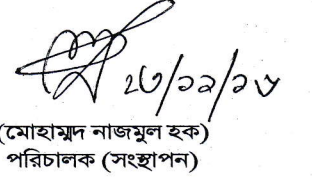 ২৬/১২/১৬
(মোহাম্মদ নাজমুল হক)
পরিচালক (সংস্থাপন)